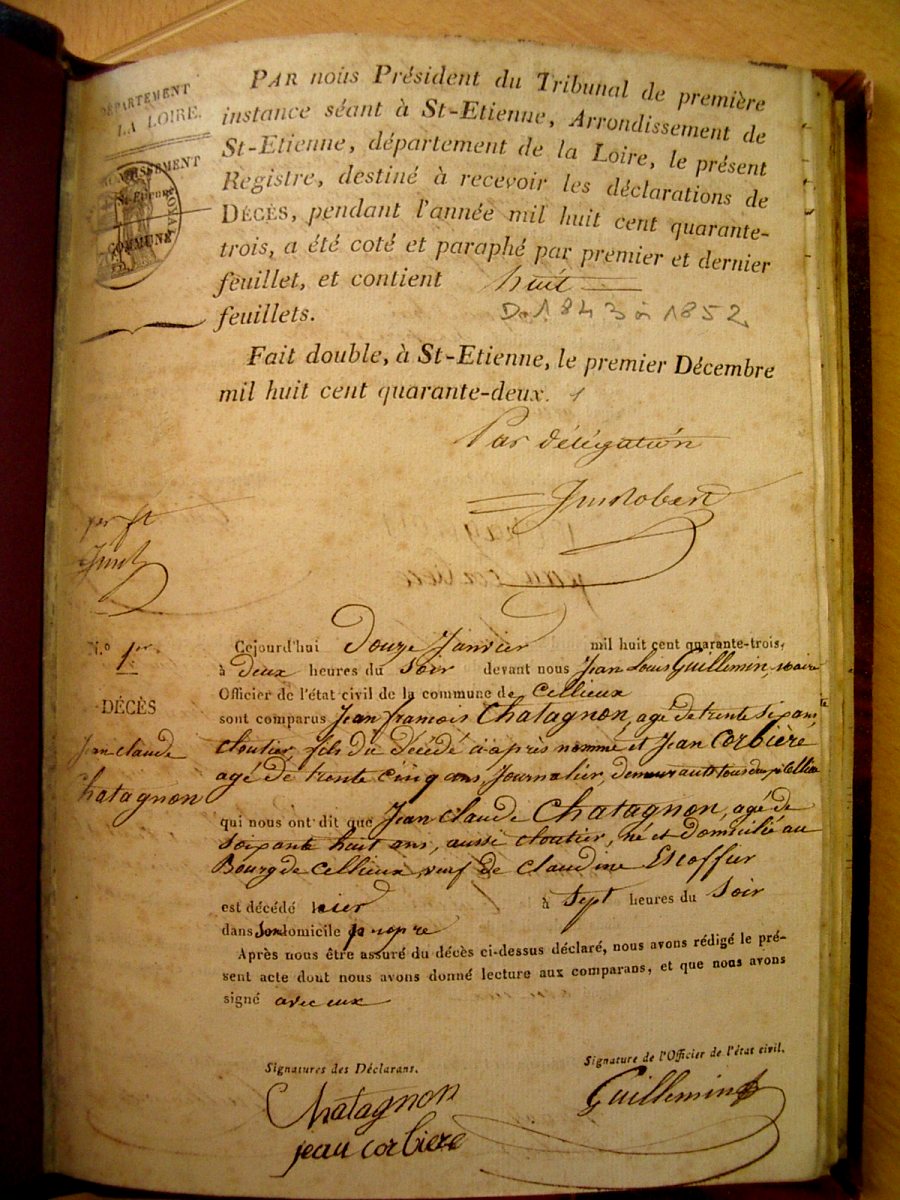 DÉPARTEMENT
LA LOIRE.
COMMUNE
PAR nous Président du Tribunal de première
instance séant à St-Etienne, Arrondissement de
St-Etienne, département de la Loire, le présent
Registre, destiné à recevoir les déclarations de
DÉCÈS, pendant l'année mil huit cent quarante-
trois, a été coté et paraphé par premier et dernier
feuillet, et contient huit
feuillets. De 1843 à 1852
Fait double, à St-Etienne, le premier Décembre
mil huit cent quarante-deux.
Par délégation
N.º 1er
DÉCÈS
Jean claude
Chatagnon
Cejourd'hui Douze Janvier mil huit cent quarante-trois,
à Deux heures du Soir devant nous Jean Louis Guillemin, maire
Officier de l'état civil de la commune de Cellieux
sont comparus Jean françois Chatagnon, agé de trente six ans,
cloutier, fils du décédé ci-après nommé et Jean Corbière
agé de trente cinq ans, Journalier, demeurant tous deux à Cellieux
qui nous ont dit que Jean Claude Chatagnon, agé de
Soixante huit ans, aussi cloutier, né et domicilié au
Bourg de Cellieux, veuf de Claudine Escoffier
est décédé hier à Sept heures du Soir
dans Son domicile propre
Après nous être assuré du décès ci-dessus déclaré, nous avons rédigé le pré-
sent acte dont nous avons donné lecture aux comparans, et que nous avons
signé avec eux
Signatures des Déclarans.
Signature de l'Officier de l'état civil.
Chatagnon
jean corbiere
Guillemin